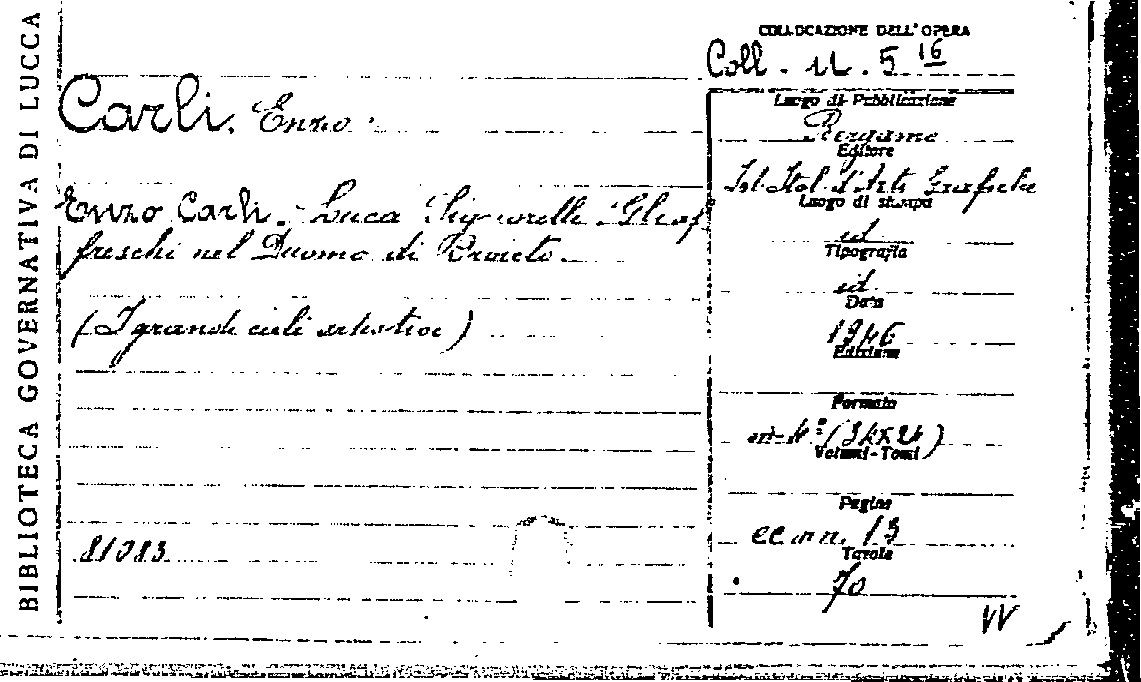 BIBLIOTECA GOVERNATIVA DI LUCCA
COLLOCAZIONE DELL'OPERA
Coll. N. 5 16
Carli. Enzo.
Enzo Carli. Luca Signorelli. Gli af
freschi nel Duomo di Orvieto.
(I grandi cicli artistici)
81083
Luogo di Pubblicazione
Bergamo
Editore
Ist. Ital. d'Arti Grafiche
Luogo di stampa
id
Tipografia
id.
Data
1946
Edizione
Formato
in-4º (34x24)
Volumi-Tomi
Pagine
cc nn. 13
Tavole
70